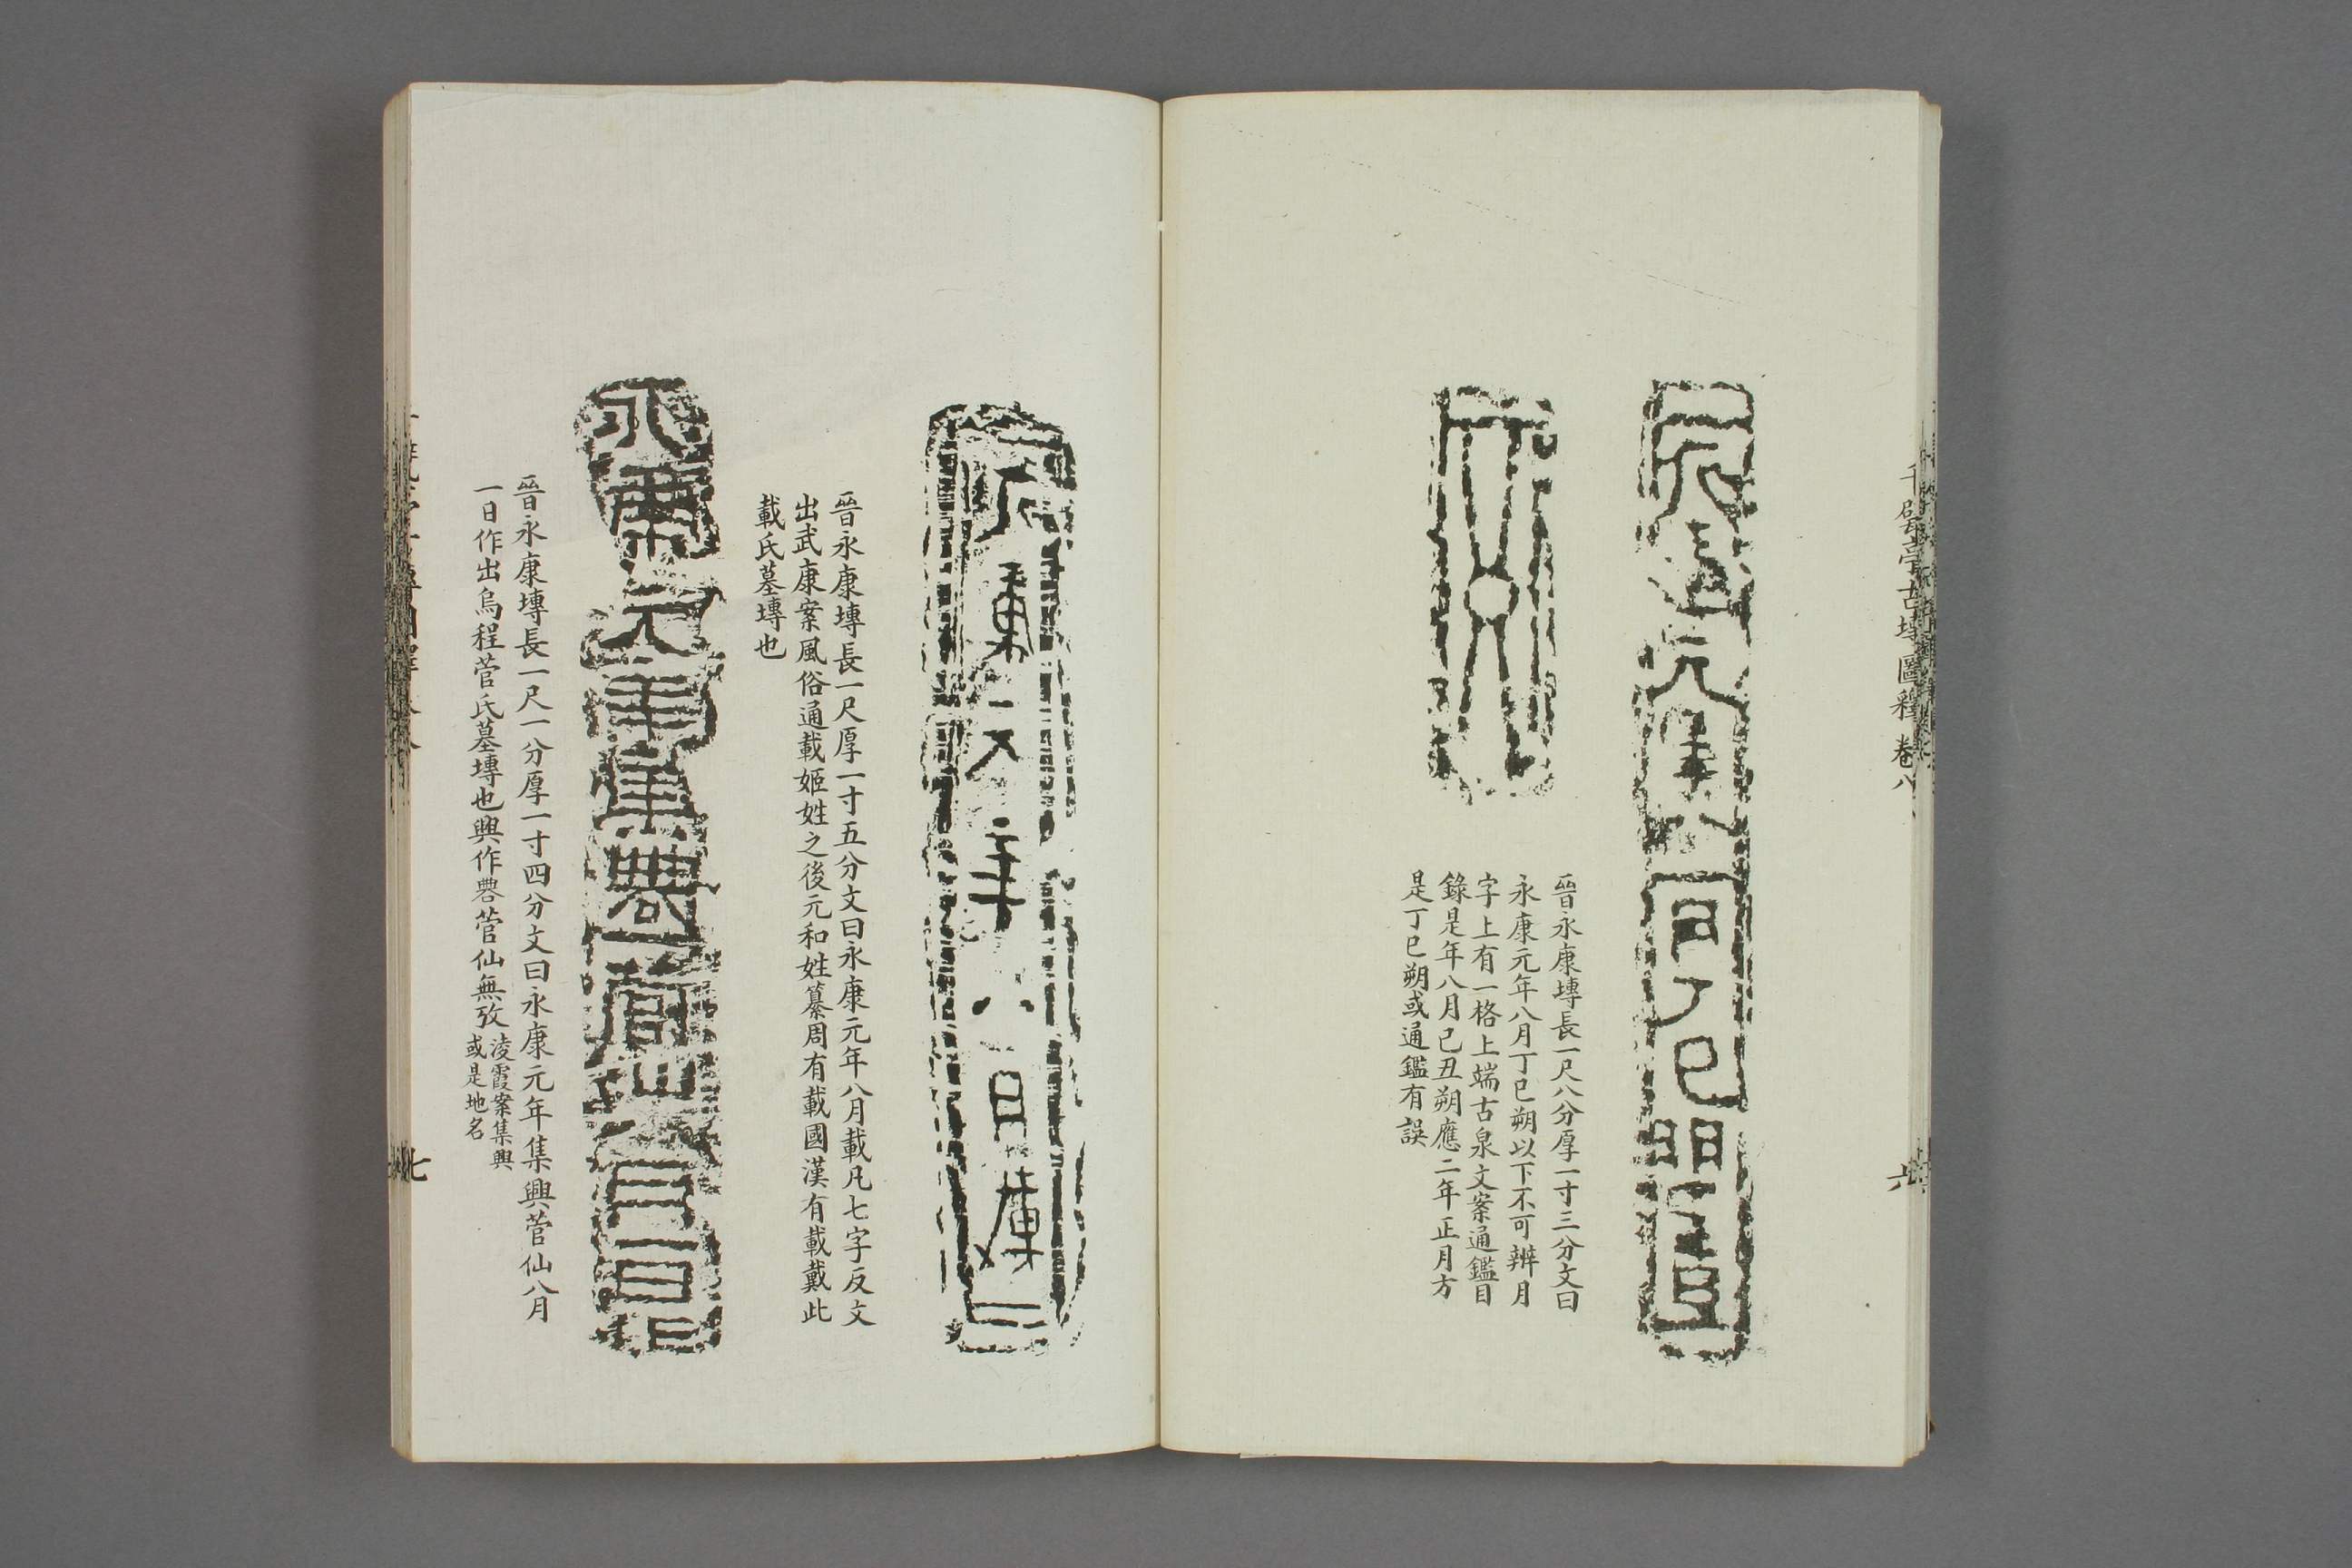 千甓亭古塼圖釋 卷八
六
晉永康塼長一尺八分厚一寸三分文曰
永康元年八月丁巳朔以下不可辨月
字上有一格上端古泉文案通鑑目
錄是年八月己丑朔應二年正月方
是丁巳朔或通鑑有誤
晉永康塼長一尺厚一寸五分文曰永康元年八月載凡七字反文
出武康案風俗通載姬姓之後元和姓纂周有載國漢有載戴此
載氏墓塼也
永康元年集㒷菅仙八月一日作
晉永康塼長一尺一分厚一寸四分文曰永康元年集興菅仙八月
一日作出烏程菅氏墓塼也興作㒷菅仙無攷
淩霞案集興
或是地名
七